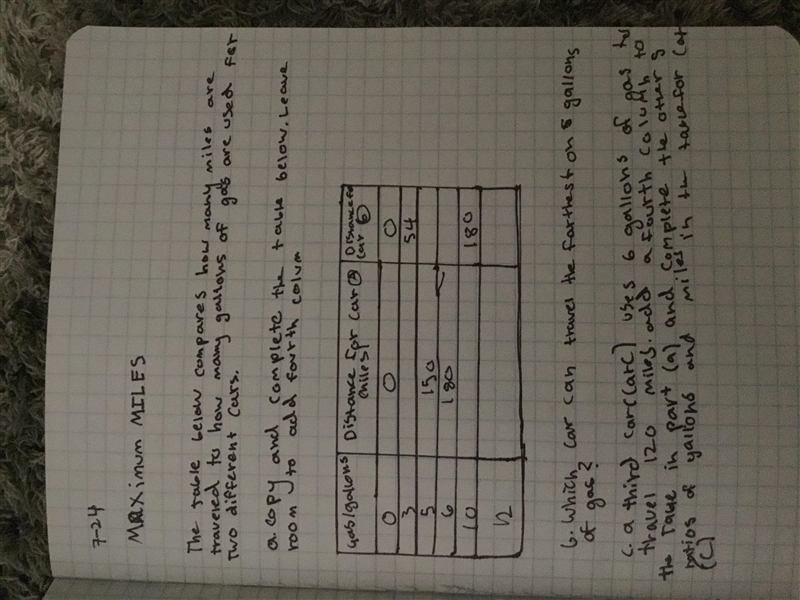 7-24
MAXIMUM MILES
The table below compares how many miles are
traveled to how many gallons of gas are used for
Two different cars.
a. copy and complete the table below. Leave
room to add fourth colum
Gas/gallons Distance for car (a) (miles) Distance for car (b)
0 0 0
3 54
5 150
6 180
10 180
12
b. Which car can travel the farthest on 8 gallons
of gas?
c. a third car(carc) uses 6 gallons of gas to
travel 120 miles. add a fourth column to
the table in part (a) and complete the other 5
ratios of gallons and miles in the table for Car
(C)